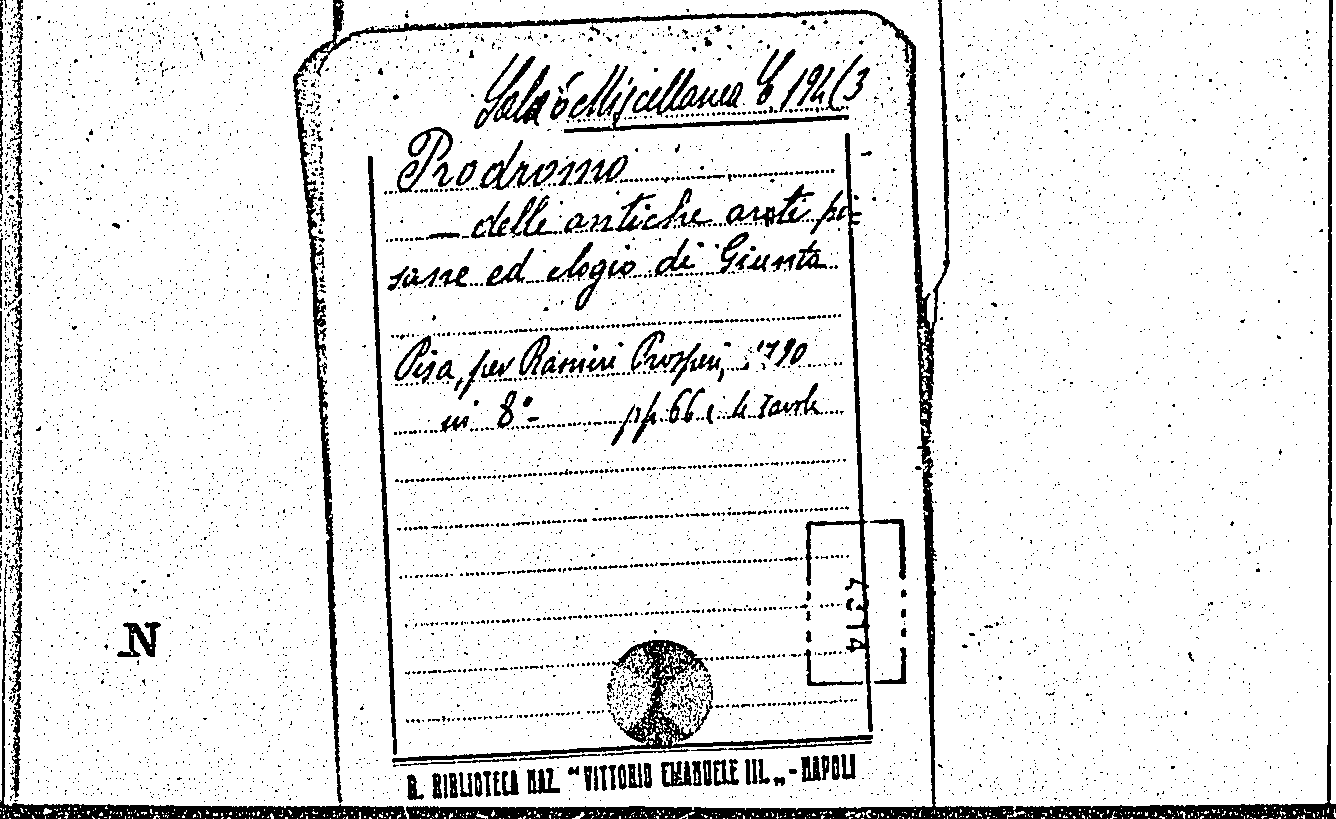 Sala 6 Miscellanea C. 194(3
Prodromo
— delle antiche arti pi=
sane ed elogio di Giunta
Pisa, per Ranieri Prosperi, 1790
in 8°- pp. 66 Tavole
4314
N
R. BIBLIOTECA NAZ. “VITTORIO EMANUELE III.„ - NAPOLI